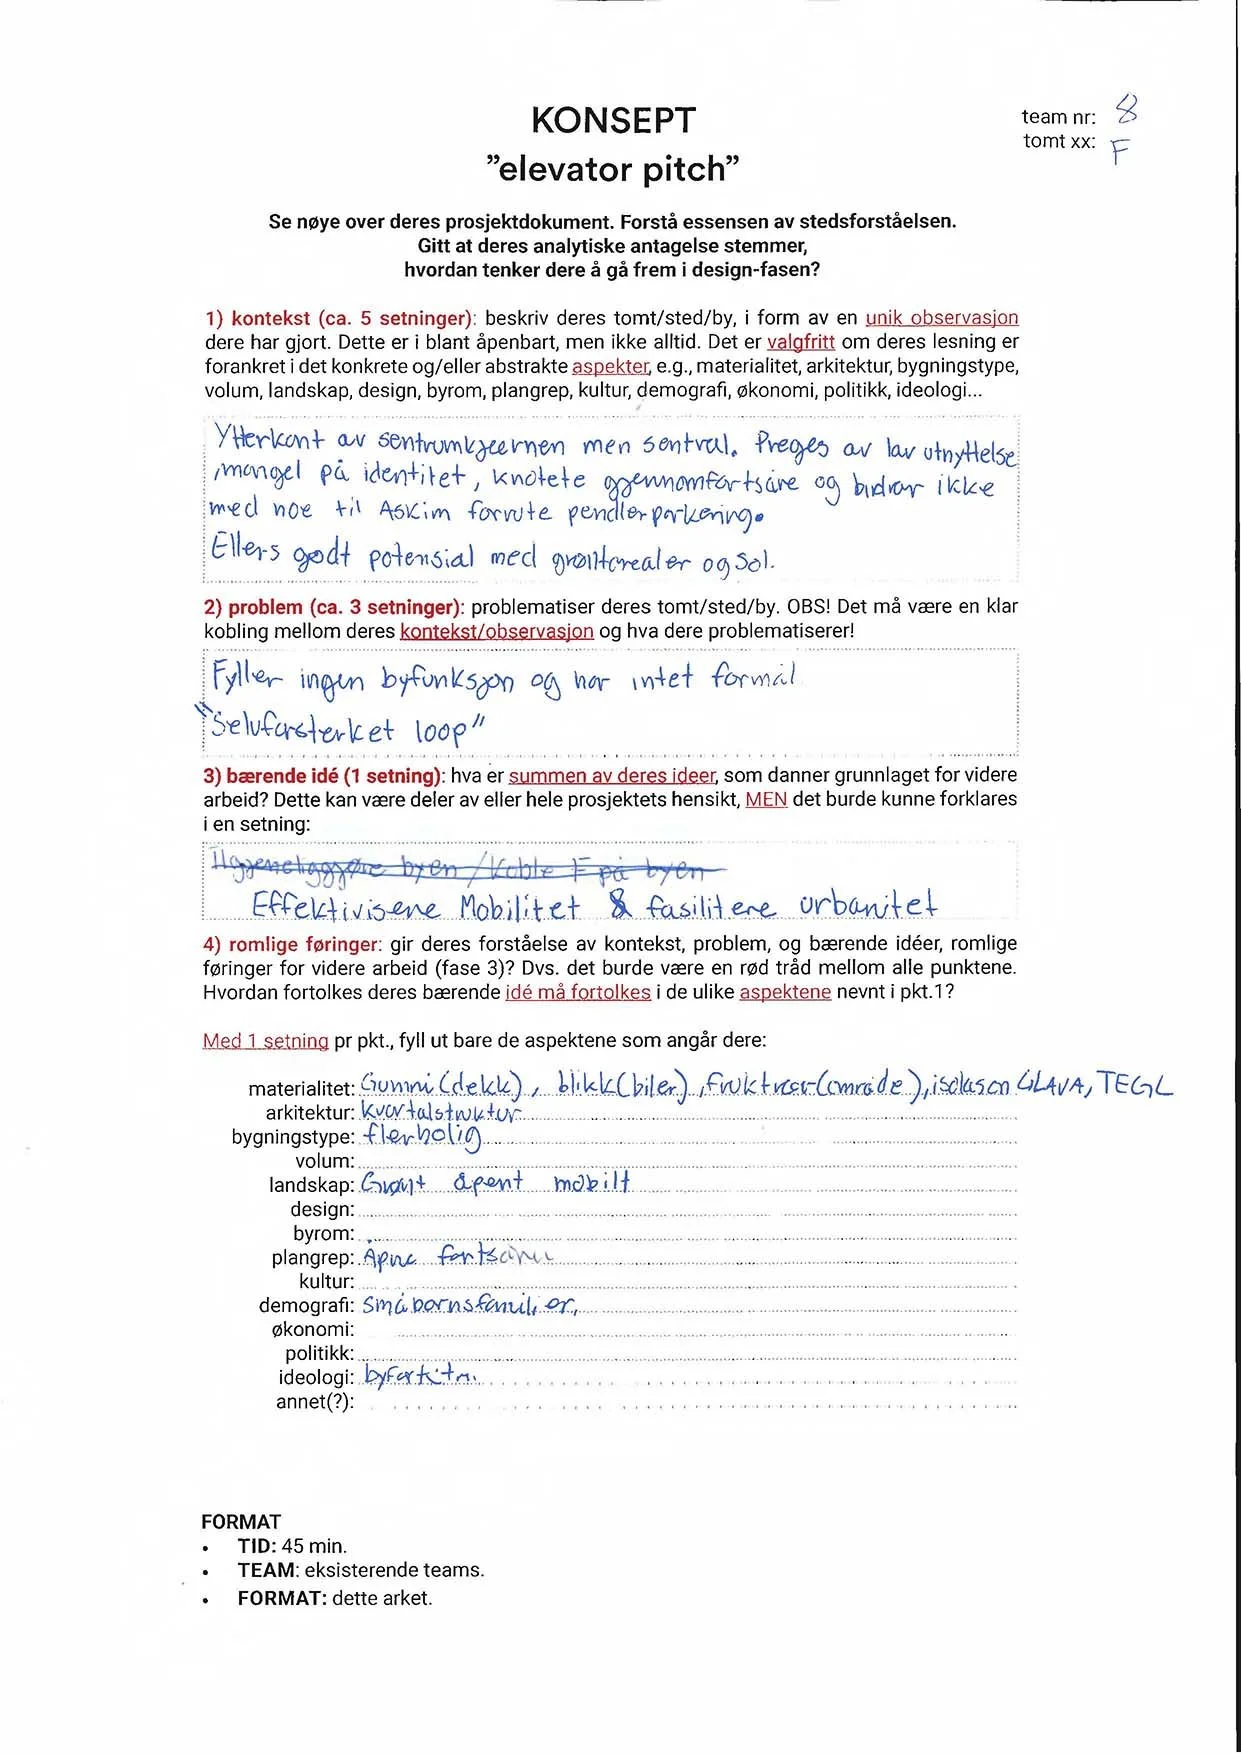 KONSEPT
"elevator pitch"
team nr: 8
tomt xx: F
Se nøye over deres prosjektdokument. Forstå essensen av stedsforståelsen.
Gitt at deres analytiske antagelse stemmer,
hvordan tenker dere å gå frem i design-fasen?
1) kontekst (ca. 5 setninger): beskriv deres tomt/sted/by, i form av en unik observasjon
dere har gjort. Dette er i blant åpenbart, men ikke alltid. Det er valgfritt om deres lesning er
forankret i det konkrete og/eller abstrakte aspekter, e.g., materialitet, arkitektur, bygningstype,
volum, landskap, design, byrom, plangrep, kultur, demografi, økonomi, politikk, ideologi...
Ytterkant av sentrumkjeernen men sentral. Preges av lav utnyttelse
,mangel på identitet, knotete gjennomfartsåre og bidrar ikke
med noe til Askim forrute pendlerparkering.
Ellers godt potensial med grøntarealer og sol.
2) problem (ca. 3 setninger): problematiser deres tomt/sted/by. OBS! Det må være en klar
kobling mellom deres kontekst/observasjon og hva dere problematiserer!
Fyller ingen byfunksjon og har intet formål
"Selvforsterket loop"
3) bærende idé (1 setning): hva er summen av deres ideer, som danner grunnlaget for videre
arbeid? Dette kan være deler av eller hele prosjektets hensikt, MEN det burde kunne forklares
i en setning:
byen / Koble F på byen
Effektivisene Mobilitet & fasilitere urbanitet
4) romlige føringer: gir deres forståelse av kontekst, problem, og bærende idéer, romlige
føringer for videre arbeid (fase 3)? Dvs. det burde være en rød tråd mellom alle punktene.
Hvordan fortolkes deres bærende idé må fortolkes i de ulike aspektene nevnt i pkt.1?
Med 1 setning pr pkt., fyll ut bare de aspektene som angår dere:
materialitet: Gummi (dekk), blikk (biler), frukttrær (område), isolasjon GLAVA, TEGL
arkitektur: kvartalstruktur
bygningstype: flerbolig
volum:
landskap: Grønt åpent mobilt
design:
byrom:
plangrep: Åpne
kultur:
demografi: Småbarnsfamilier,
økonomi:
politikk:
ideologi:
annet(?):
FORMAT
• TID: 45 min.
• TEAM: eksisterende teams.
• FORMAT: dette arket.